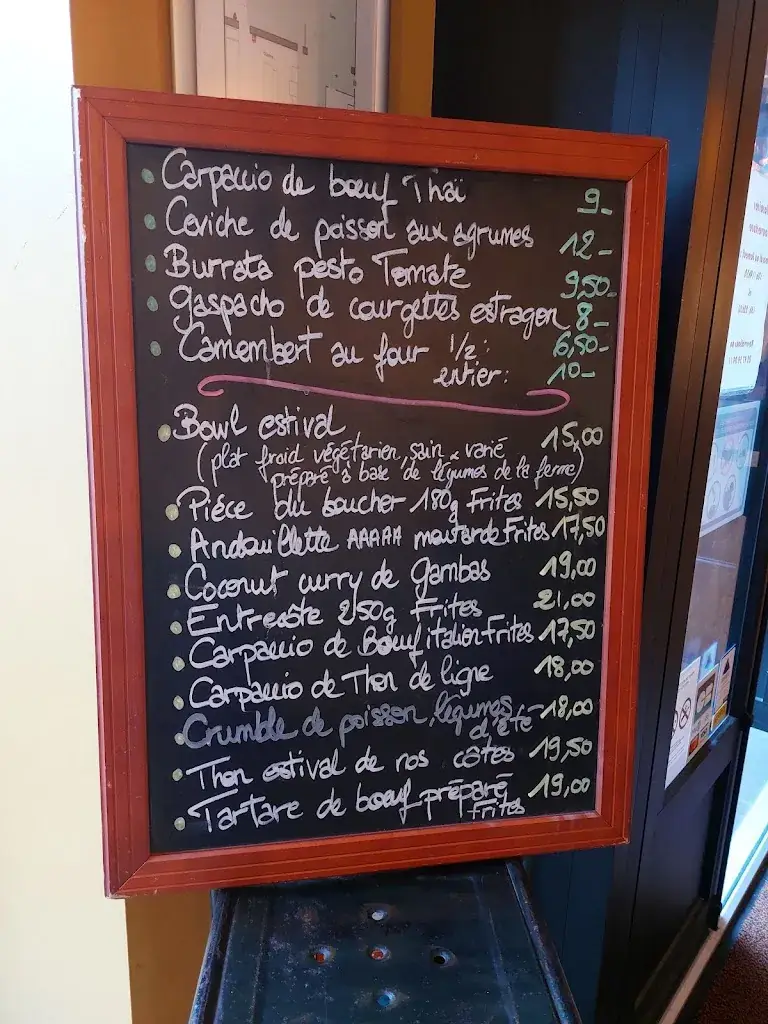 Carpaccio de bœuf Thaï 9-
Ceviche de poisson aux agrumes 12-
Burrata pesto Tomate 9,50-
gaspacho de courgettes estragon 8-
Camembert au four 1/2: 6,50-
entier: 10-
Bowl estival 15,00
(plat froid végétarien, sain & varié,
préparé à base de légumes de la ferme)
Pièce du boucher 180g Frites 15,50
Andouillette AAAAA moutarde Frites 17,50
Coconut curry de gambas 19,00
Entrecôte 250g Frites 21,00
Carpaccio de Bœuf italien Frites 17,50
Carpaccio de Thon de ligne 18,00
Crumble de poisson, légumes 18,00
d'été
Thon estival de nos côtes 19,50
Tartare de bœuf préparé 19,00
Frites